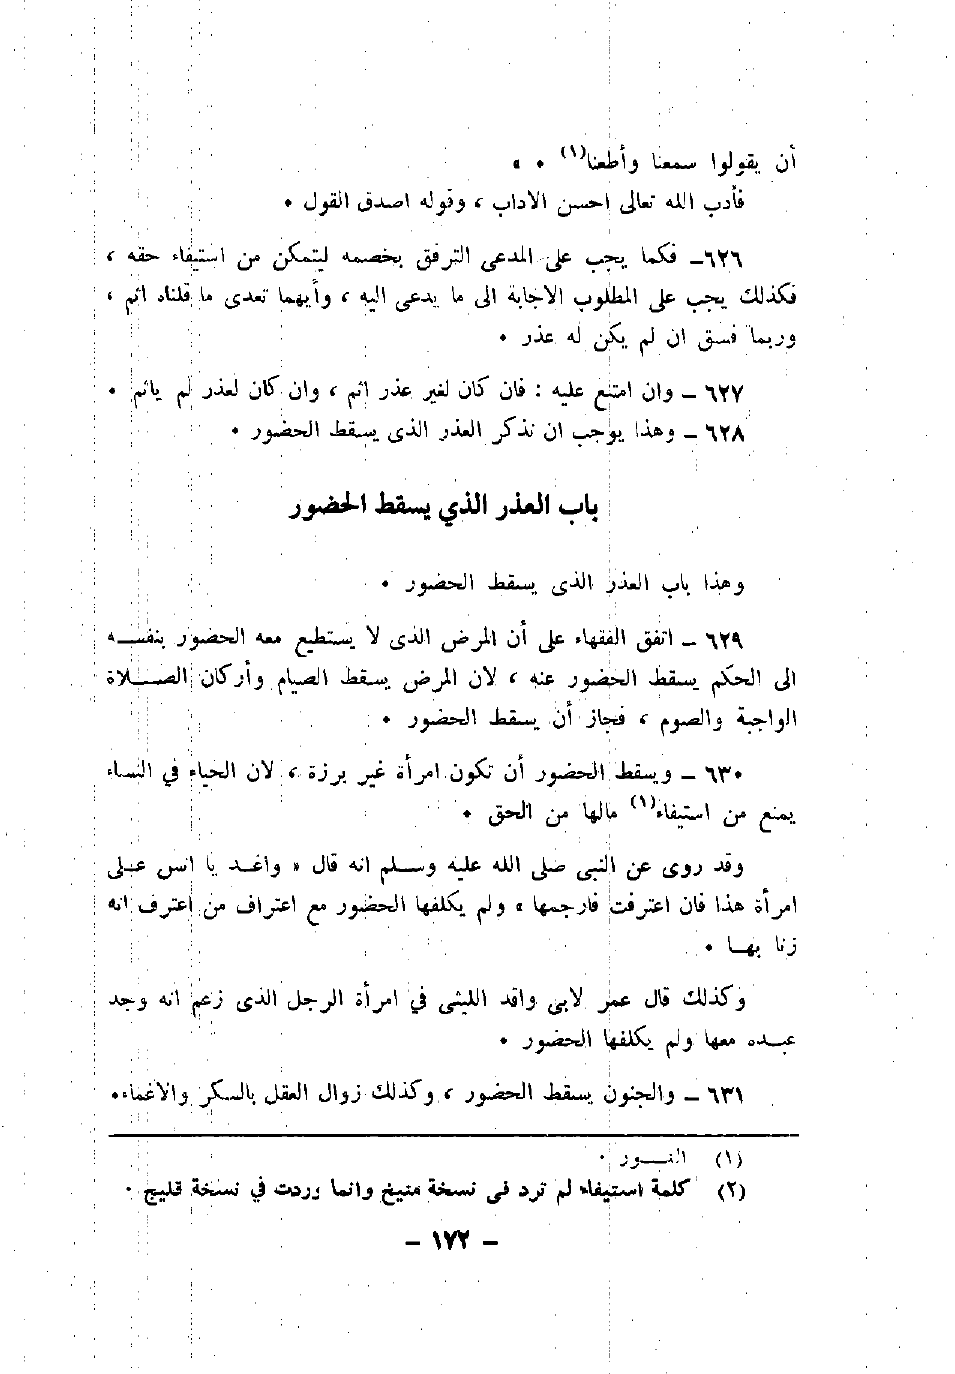 أن يقولوا سمعنا وأطعنا(١) ٠ »
فأدب الله تعالى احسن الاداب ، وقوله اصدق القول ٠
٦٢٦ـ فكما يجب على المدعى الترفق بخصمه ليتمكن من استيفاء حقه ،
فكذلك يجب على المطلوب الاجابة الى ما يدعى اليه ، وأيهما تعدى ما قلناه اثم ،
وربما فسق ان لم يكن له عذر ٠
٦٢٧ ـ وان امتنع عليه : فان كان لغير عذر اثم ، وان كان لعذر لم ياثم ٠
٦٢٨ ـ وهذا يوجب ان نذكر العذر الذى يسقط الحضور ٠
باب العذر الذي يسقط الحضور
وهذا باب العذر الذى يسقط الحضور ٠
٦٢٩ ـ اتفق الفقهاء على أن المرض الذى لا يستطيع معه الحضور بنفسـه
الى الحكم يسقط الحضور عنه ، لان المرض يسقط الصيام وأركان الصـلاة
الواجبة والصوم ، فجاز أن يسقط الحضور ٠
٦٣٠ ـ ويسقط الحضور أن تكون امرأة غير برزة ، لان الحياء في النساء
يمنع من استيفاء(١) مالها من الحق ٠
وقد روى عن النبى صلى الله عليه وسـلم انه قال « واغـد يا انس عـلى
امرأة هذا فان اعترفت فارجمها » ولم يكلفها الحضور مع اعتراف من اعترف انه
زنا بهـا ٠
وكذلك قال عمر لابى واقد الليثى في امرأة الرجل الذى زعم انه وجد
عبـده معها ولم يكلفها الحضور ٠
٦٣١ ـ والجنون يسقط الحضور ، وكذلك زوال العقل بالسكر والاغماء٠
(١) النـور ٠
(٢) كلمة استيفاء لم ترد فى نسخة منيخ وانما وردت في نسخة قليج ٠
ـ ١٧٢ ـ